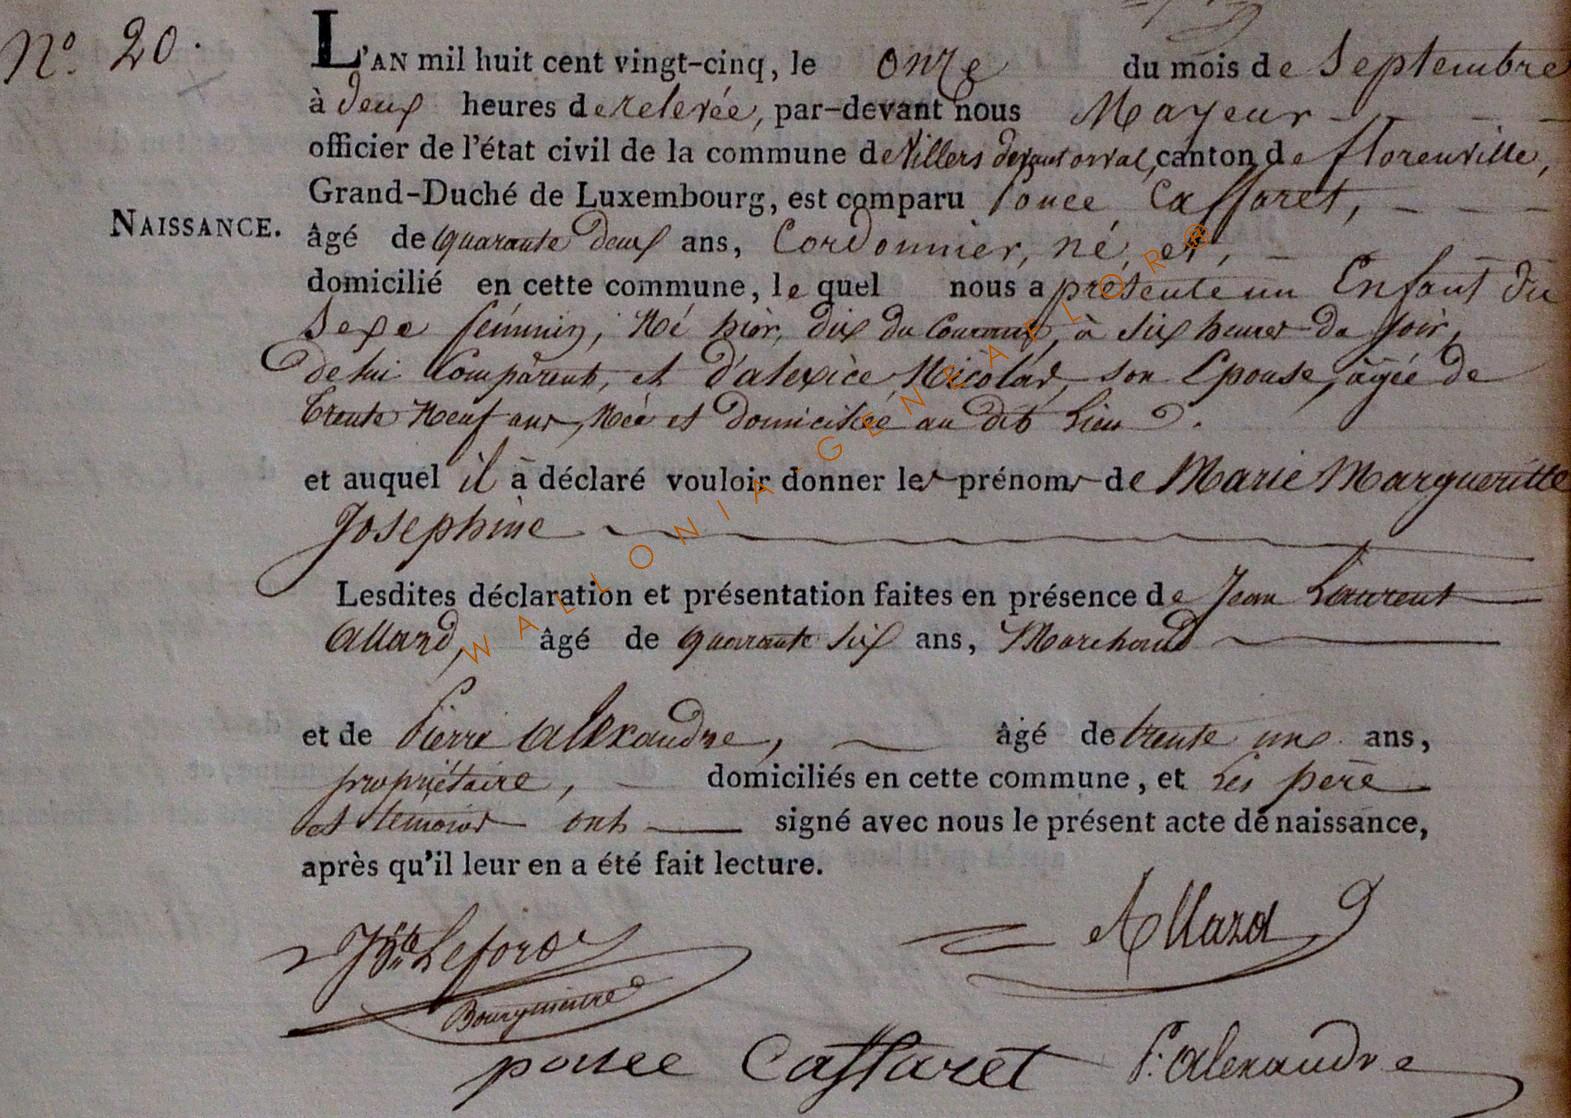 N.o 20.
L'AN mil huit cent vingt-cinq, le onze du mois de Septembre
à deux heures de relevée, par-devant nous Mayeur
officier de l'état civil de la commune de Villers devant orval, canton de florenville,
Grand-Duché de Luxembourg, est comparu Ponce Caffaret,
NAISSANCE.
âgé de quarante deux ans, Cordonnier, né, et,
domicilié en cette commune, le quel nous a présenté un Enfant du
Sexe féminin, Né hièr, dix du Courant, à six heures du soir,
de lui Comparant, et d'alexice Nicolas, son Epouse, agée de
trente Neuf ans, Née et domiciliée au dit Lieu.
et auquel il a déclaré vouloir donner les prénoms de Marie Margueritte
Josephine
Lesdites déclaration et présentation faites en présence de Jean Laurent
Allard, âgé de quarante six ans, Marchand
et de Pierre alexandre, âgé de trente une ans,
propriétaire, domiciliés en cette commune, et les père
et témoins ont signé avec nous le présent acte de naissance,
après qu'il leur en a été fait lecture.
Allard
Jbte Leford
Bourgmestre
ponce Caffaret P: alexandre
WALLONIA-GENRAFLOR®